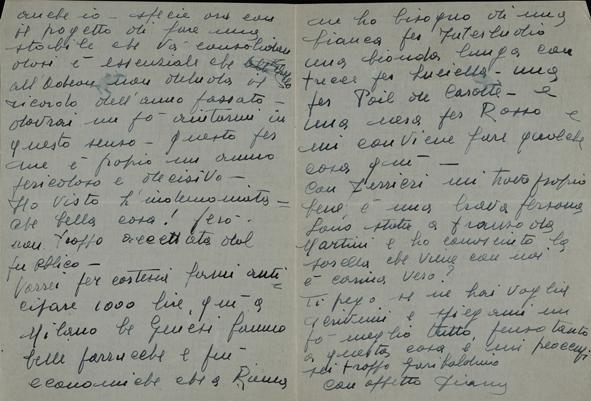 anche io - specie ora con
il progetto di fare una
stabile che va consolidan
dosi è essenziale che
all'Odeon non deluda il
ricordo dell'anno passato -
dovrai un po' aiutarmi in
questo senso - questo per
me è proprio un anno
pericoloso e decisivo -
Ho visto l'indemoniata -
che bella cosa! però -
non troppo accettata dal
pubblico -
Vorrei per cortesia farmi anti=
cipare 1000 lire, qui a
Milano le fanno
belle parrucche e più
economiche che a Roma
ne ho bisogno di una
bianca per Interludio
una bionda lunga con
trecce per - una
per Poil de Carotte - e
una nera per Rosso e
mi conviene fare qualche
cosa qui -
Con mi trovo proprio
bene è una brava persona
sono stata a pranzo da
Martini e ho conosciuto la
sorella che vive con noi
è carina vero?
Ti prego se ne hai voglia
scrivimi e spiegami un
po' meglio tutto penso tanto
a questa cosa e mi preoccupi
sei troppo garibaldino
con affetto